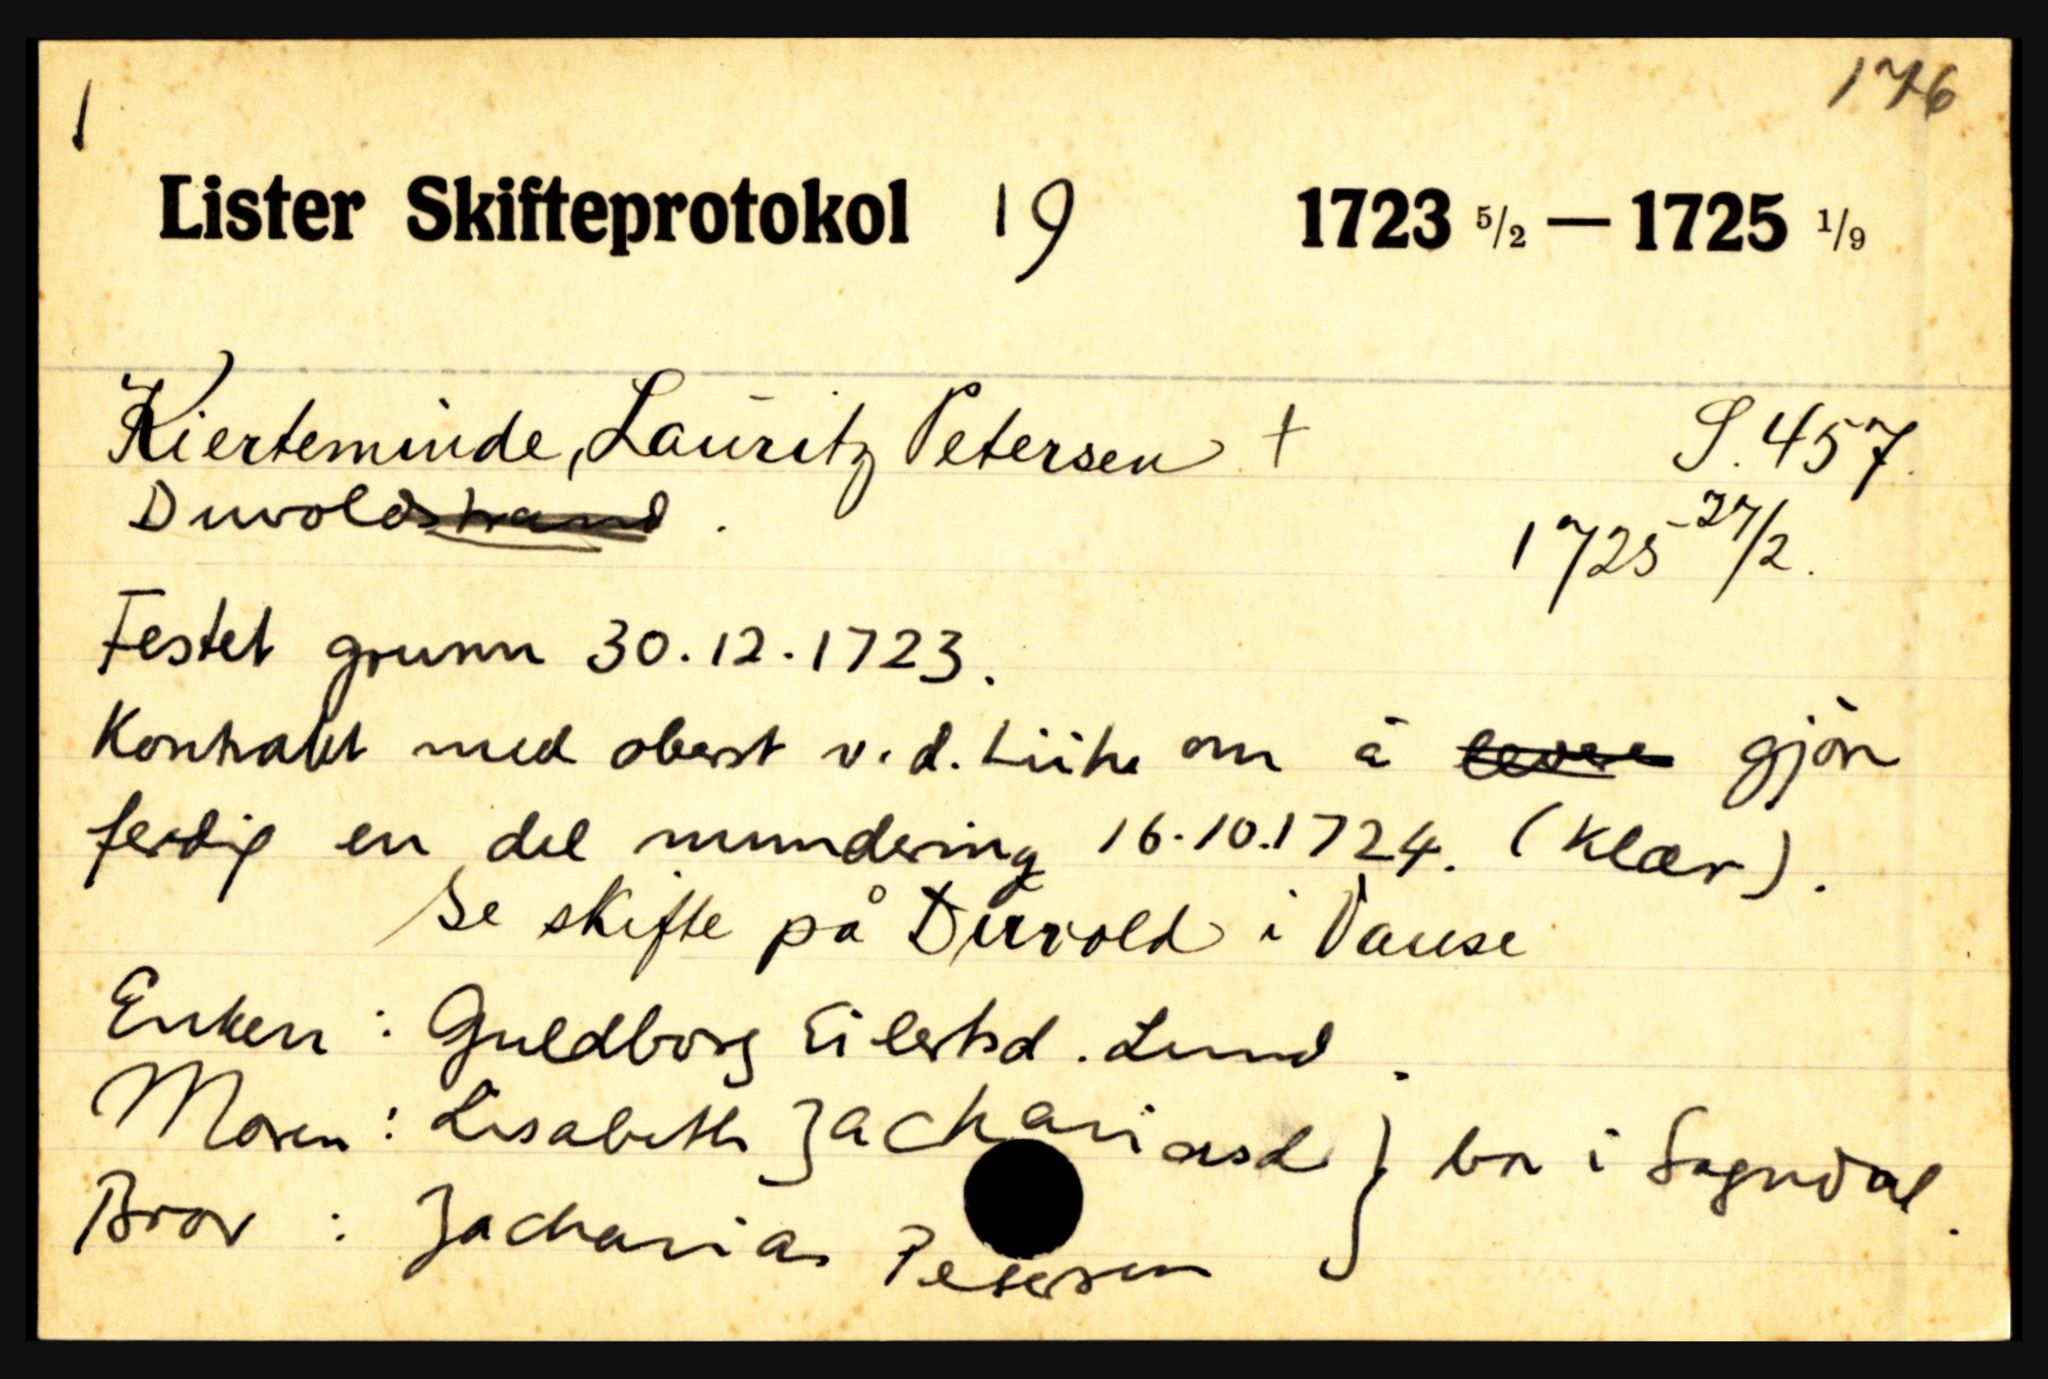 1
176
Lister Skifteprotokol 19 1723 5/2 — 1725 1/9
Kierteminde, Lauritz Petersen † S. 457.
Duvoldstrand. 1725-27/2.
Festet grunn 30.12.1723.
Kontrakt med oberst v.d. Lühe om å levere gjöre
ferdig en del mundering 16.10.1724. (Klær).
Se skifte på Duvold i Vanse
Enken: Guldborg Eilertsd. Lund.
Moren: Lisabeth Zachariasd } bor i Sogndal.
Bror: Zacharias Petersen